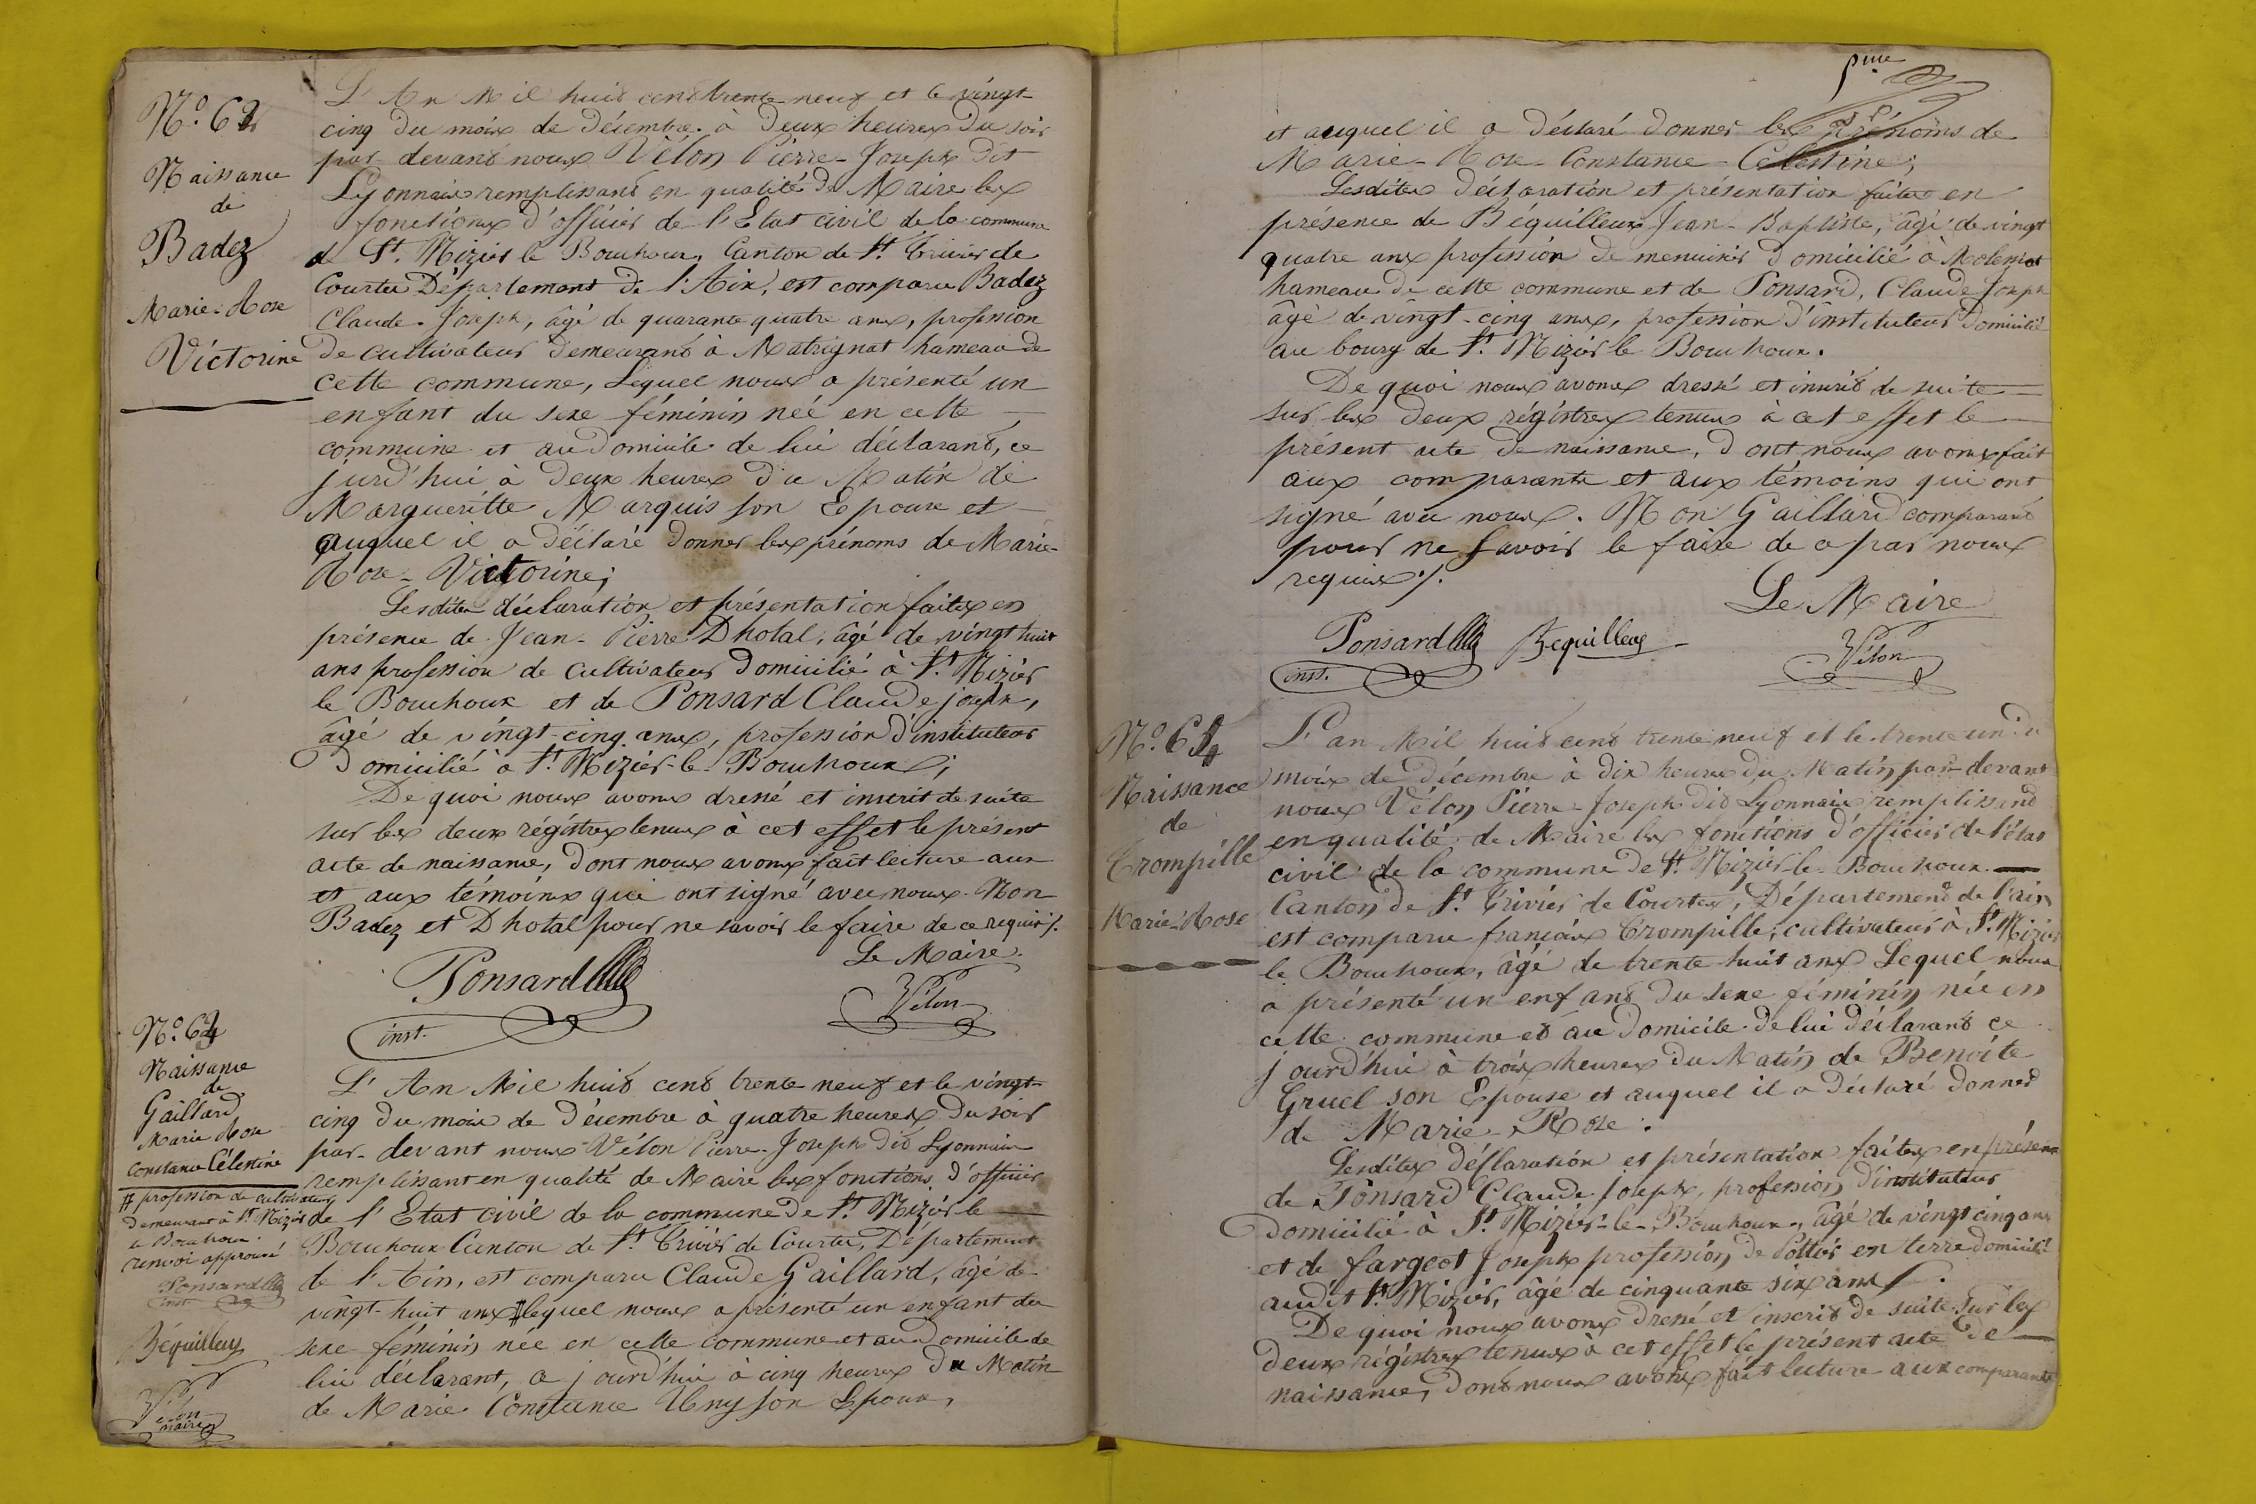 N.o 62
Naissance
de
Badez
Marie-Rose
Victorine
L'An Mil huit cent trente neuf et le vingt
cinq du mois de décembre à deux heures du soir
par devant nous Vélon Pierre-Joseph dit
Lyonnais remplissant en qualité de Maire les
fonctions d'officier de l'Etat civil de la commune
de St. Nizier le Bouchoux, Canton de St. Trivier de
Courtes Département de l'Ain, est comparu Badez
Claude-Joseph, âgé de quarante quatre ans, profession
de cultivateur demeurant à Matrignat hameau de
cette commune, Lequel nous a présenté un
enfant du sexe féminin née en cette
commune et au domicile de lui déclarant, ce
jurd'hui à deux heures du Matin de
Margueritte Marquis son Epouse et
auquel il a déclaré donner les prénoms de Marie-
Rose-Victorine;
Lesdites déclaration et présentation faites en
présence de Jean-Pierre Dhotal, âgé de vingt huit
ans profession de cultivateur domicilié à St. Nizier
le Bouchoux et de Ponsard Claude joseph,
âgé de vingt-cinq ans, profession d'instituteur
domicilié à St. Nizier-le-Bouchoux;
De quoi nous avons dressé et inscrit de suite
sur les deux régistres tenus à cet effet le présent
acte de naissance, dont nous avons fait lecture aux
et aux témoins qui ont signé avec nous. Non
Badez et Dhotal pour ne savoir le faire de ce requis /.
Le Maire
Ponsard
inst.
Vélon
N.o 63
Naissance
de
Gaillard,
Marie Rose
Constance Célestine
# profession de cultivateur
demeurant à St. Nizier
le Bouchoux.
renvoi approuvé
Ponsard
inst.
Béquilleux
Vélon
maire
L'An Mil huit cent trente neuf et le vingt-
cinq du mois de Décembre à quatre heures du soir
par-devant nous Vélon Pierre-Joseph dit Lyonnais
remplissant en qualité de Maire les fonctions d'officier
de l'Etat civil de la commune de St. Nizier-le
Bouchoux Canton de St. Trivier de Courtes, Département
de l'Ain, est comparu Claude Gaillard, âgé de
vingt-huit ans # lequel nous a présenté un enfant du
sexe féminin née en cette commune et au domicile de
lui déclarant, ce jourd'hui à cinq heures du Matin
de Marie Constance son Epouse,
et auquel il a déclaré donner les prénoms de
Marie-Rose-Constance-Célestine;
Lesdites déclaration et présentation faites en
présence de Béquilleux Jean-Baptiste, âgé de vingt
quatre ans profession de menuisier domicilié à Molemot
hameau de cette commune et de Ponsard, Claude Joseph
âgé de vingt-cinq ans, profession d'instituteur domicilié
au bourg de St. Nizier le Bouchoux.
De quoi nous avons dressé et inscrit de suite
sur les deux régistres tenus à cet effet le
présent acte de naissance, dont nous avons fait
aux comparants et aux témoins qui ont
signé avec nous. Non Gaillard comparant
pour ne savoir le faire de ce par nous
requis /.
Le Maire
Ponsard
inst.
Bequilleux
Vélon
N.o 64
Naissance
de
Trompille
Marie-Rose
L'an Mil huit cent trente neuf et le trente un du
mois de Décembre à dix heures du Matin par-devant
nous Vélon Pierre-Joseph dit Lyonnais remplissant
en qualité de Maire les fonctions d'officier de l'état
civil de la commune de St. Nizier-le-Bouchoux
Canton de St. Trivier de Courtes, Département de l'ain
est comparu françois Trompille, cultivateur à St. Nizier
le Bouchoux, âgé de trente huit ans Lequel nous
a présenté un enfant du sexe féminin née en
cette commune et au domicile de lui déclarant ce
jourd'hui à trois heures du Matin de Benoîte
Gruel son Epouse et auquel il a déclaré donner
de Marie-Rose.
Lesdites déclaration et présentation faites en présence
de Ponsard Claude Joseph, profession d'instituteur
domicilié à St. Nizier-le-Bouchoux, âgé de vingt cinq ans
et de fargeot Joseph profession de Pottier en terre domicilié
audit St. Nizier, âgé de cinquante six ans.
De quoi nous avons dressé et inscrit de suite sur les
deux régistres tenus à cet effet le présent acte de
naissance, dont nous avons fait lecture aux comparants